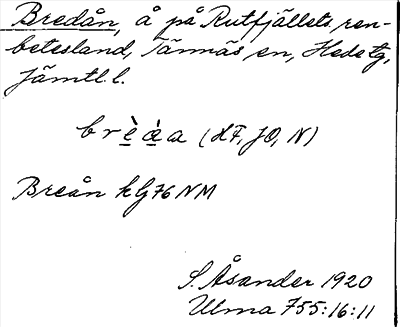 Bredån, å på Rutfjällets ren-
betesland, Tännäs sn, Hede tg,
Jämtl. l.
brèa̱a (HF, JO, N)
Breån kbl 76 NM
S. Åsander 1920
Ulma 755:16:11